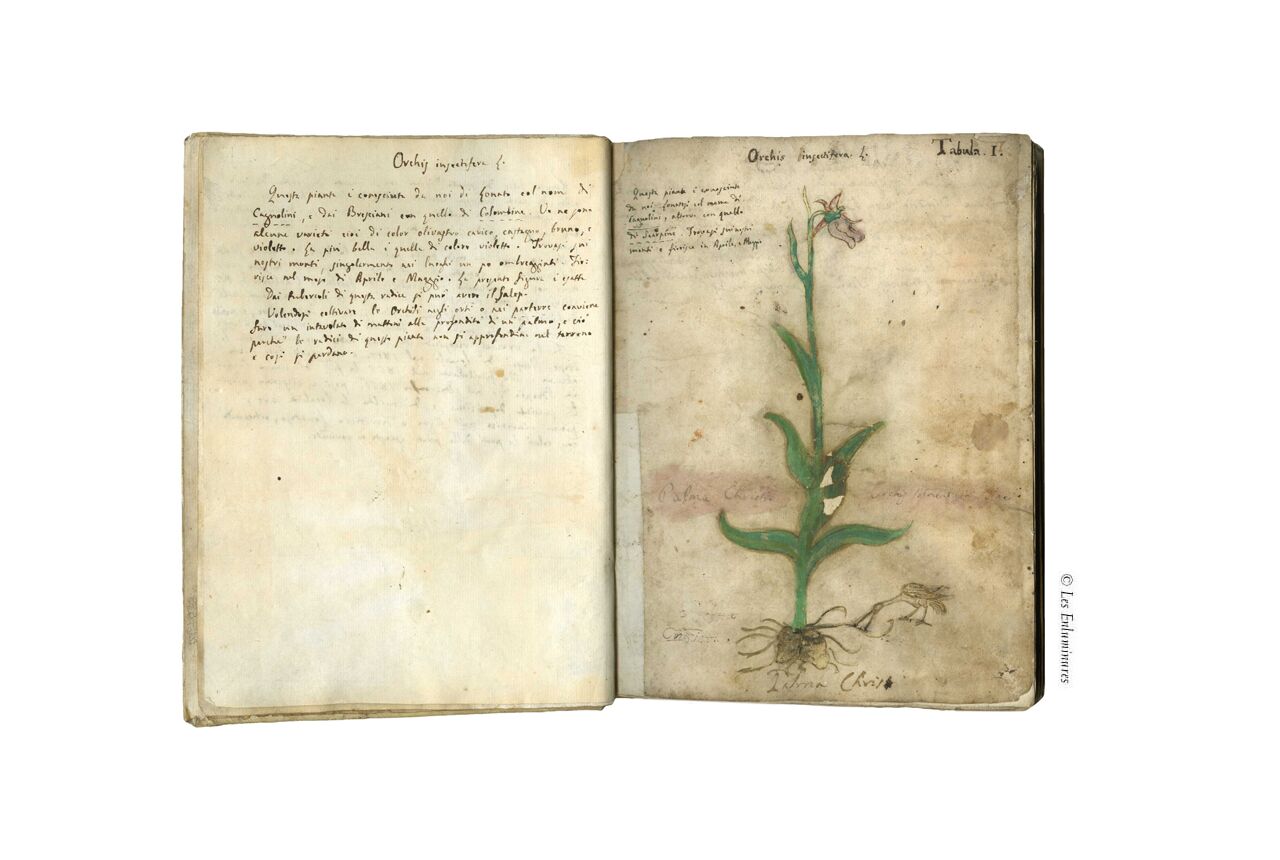 Orchis insectifera L.
Questa pianta è conosciuta da noi di Lonato col nome di
Cagnolini, e dai Bresciani con quello di Colombina. Ve ne sono
alcune varietà cioè di color olivastro carico, castagno, bruno, e
violetto. La più bella è quella di colore violetto. Trovasi sui
nostri monti, singolarmente nei luoghi un po ombreggiati. Fio-
risce nel mese di Aprile e Maggio. La presente figura è esatta
Dai tubercoli di questa radice si può avere il Salep.
Volendosi coltivare le Orchidi negli orti o nei parterre conviene
fare un intavolato di mattoni alla profondità di un palmo, e ciò
perchè le radici di queste piante non si approfondino nel terreno
e così si perdano.
Orchis insectifera. L.
Tabula. I.
Questa pianta è conosciuta
da noi Lonatesi col nome di
Cagnolini, altrove con quello
di Scarpine. Trovasi sui nostri
monti e fiorisce in Aprile, e Maggio
Palma Christi
Palma Christi
© Les Enluminures